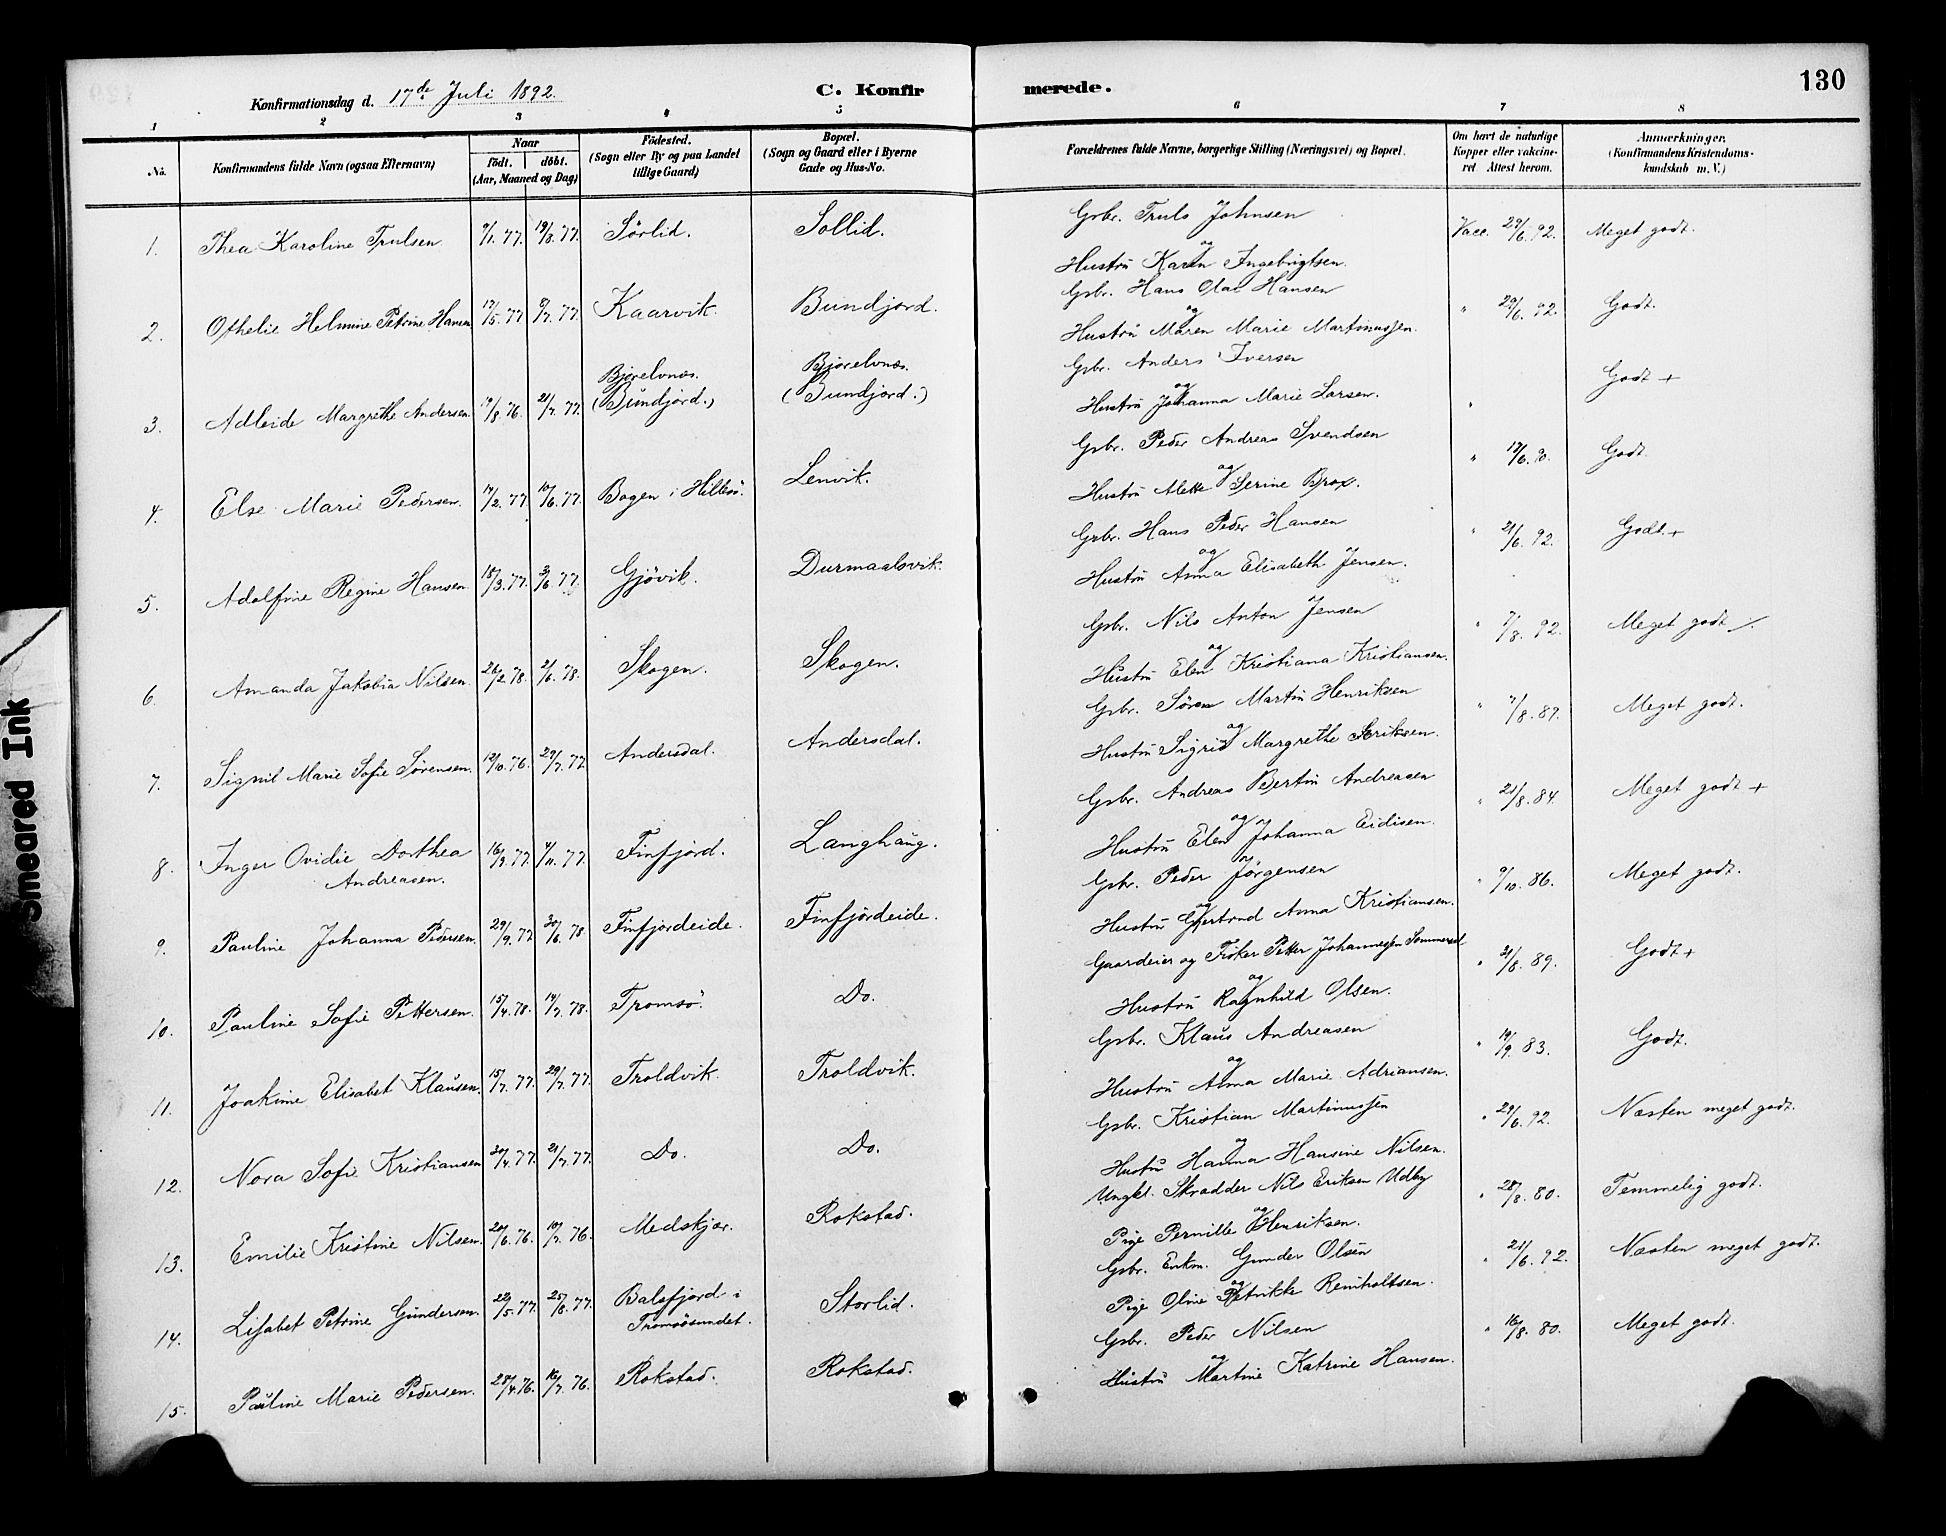 130
Konfirmationsdag d. 17de Juli 1892.
C. Konfirmerede.
1 2 3 4 5 6 7 8
No. Konfirmandens fulde Navn (ogsaa Efternavn) Naar födt. döbt. (Aar, Maaned og Dag) Födested. (Sogn eller By og paa Landet tillige Gaard) Bopæl. (Sogn og Gaard eller i Byerne Gade og Hus-No.) Forældrenes fulde Navne, borgerlige Stilling (Næringsvei) og Bopæl. Om havt de naturlige Kopper eller vakcineret. Attest herom. Anmærkninger. (Konfirmandens Kristendomskundskab m. V.)
1. Thea Karoline Trulsen 7/1. 77. 19/8. 77. Sörlid. Sollid. Gbr. Truls Johnsen og Hustru Karen Ingebrigtsen. Vacc. 29/6. 92. Meget godt.
2. Othelie Helmine Petrine Hansen 17/5. 77 8/7. 77. Kaarvik. Bundjord. Gbr. Hans Olai Hansen og Hustru Maren Marie Martinussen. " 29/6. 92. Godt.
3. Adleide Margrethe Andersen 19/8. 76. 21/7. 77. Bjorelvnæs. (Bundjord.) Bjorelvnæs. (Bundjord.) Gbr. Anders Iversen og Hustru Johanna Marie Larsen. " Godt +
4. Else Marie Pedersen. 14/2. 77 10/6. 77. Bogen i Hillesö. Lenvik. Gbr. Peder Andreas Svendsen og Hustru Alette Serine Brox. " 13/6. 90. Godt.
5. Adolfine Regine Hansen 18/3. 77. 3/6. 77. Gjövik. Durmaalsvik. Gbr. Hans Peder Hansen og Hustru Anna Elisabeth Jensen. " 21/6. 92. Godt. +
6. Amanda Jakobia Nilsen 26/2. 78. 2/6. 78. Skogen. Skogen. Gbr. Nils Anton Jensen og Hustru Elen Kristiana Kristiansen. " 7/8. 92. Meget godt
7. Signil Marie Sofie Sørensen. 12/10. 76. 29/7. 77 Andersdal. Andersdal. Gbr. Søren Martin Henriksen og Hustru Sigrid Margrethe Eriksen. " 7/8. 87. Meget godt.
8. Inger Ovidie Dorthea Andreasen. 16/9. 77. 4/11. 77. Finfjord. Langhaug. Gbr. Andreas Bertin Andreasen og Hustru Elen Johanna Eidisen. " 21/8. 84. Meget godt +
9. Pauline Johanna Pedersen. 29/9. 77 30/6. 78 Finfjordeide. Finfjordeide. Gbr. Peder Jörgensen og Hustru Gjertrud Anna Kristiansen. " 9/10. 86. Meget godt.
10. Pauline Sofie Pettersen. 15/4. 78. 14/7. 78. Tromsö. Do. Gaardeier og Fisker Petter Johannessen Sommersel og Hustru Ragnhild Olsen. " 21/8. 89. Godt +
11. Joakime Elisabet Klausen. 15/7. 77. 29/7. 77. Troldvik. Troldvik. Gbr. Klaus Andreasen og Hustru Anna Marie Adriansen. " 19/9. 83. Godt.
12. Nora Sofie Kristiansen 30/4. 77. 21/7. 77. Do. Do. Gbr. Kristian Martinussen og Hustru Hanna Hansine Nilsen. " 29/6. 92. Næsten meget godt.
13. Emilie Kristine Nilsen. 20/6. 76. 10/7. 76. Medskjær. Rokstad. Ungkl. Skrædder Nils Eriksen Udby og Pige Pernille Henriksen. " 28/8. 80. Temmelig godt.
14. Lisabet Petrine Gundersen. 22/5. 77. 25/8. 77. Balsfjord i Tromsösundet. Storlid. Gbr. Enkm. Gunder Olsen og Pige Oline Petrikke Reinholtsen. " 21/6. 92. Næsten meget godt.
15. Pauline Marie Pedersen. 28/4. 76. 16/7. 76. Rokstad. Rokstad. Gbr. Peder Nilsen og Hustru Martine Katrine Hansen. " 16/8. 80. Meget godt.
Smeared Ink